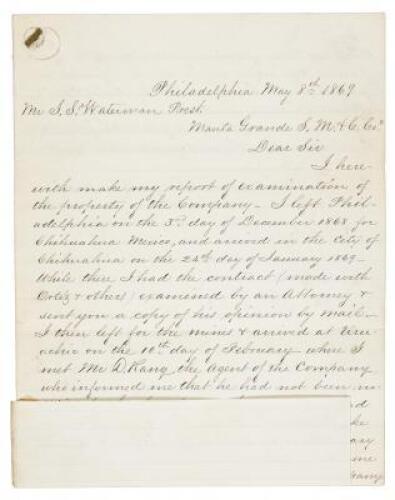 Philadelphia May 8th 1869
Mr J. S. Waterman Prest.
Manta Grande S. M. & C. Co.
Dear Sir
I here-
with make my report of examination of
the property of the Company — I left Phil-
adelphia on the 3d day of December 1868 for
Chihuahua Mexico, and arrived in the City of
Chihuahua on the 24th day of January 1869 —
While there I had the contract (made with
& others) examined by an Attorney &
sent you a copy of his opinion by mail —
I then left for the mines & arrived at
on the 10th day of February where I
met Mr D. the Agent of the Company
who informed me that he had not been